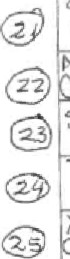 21
22
23
24
25